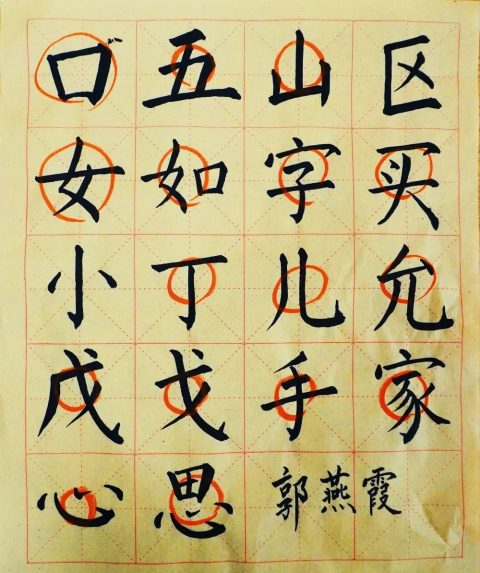 口五山区
女如字买
小丁儿允
戊戈手家
心思郭燕霞